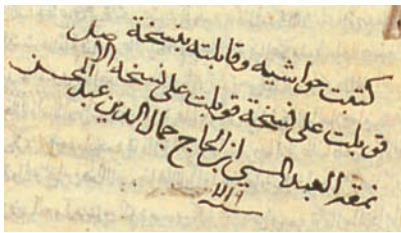 كتبت حواشيه وقابلته بنسخة
قوبلت على نسخة قوبلت على نسخة الاصل
نمقه العبد المسي ابن الحاج جمال الدين عبد المحسن